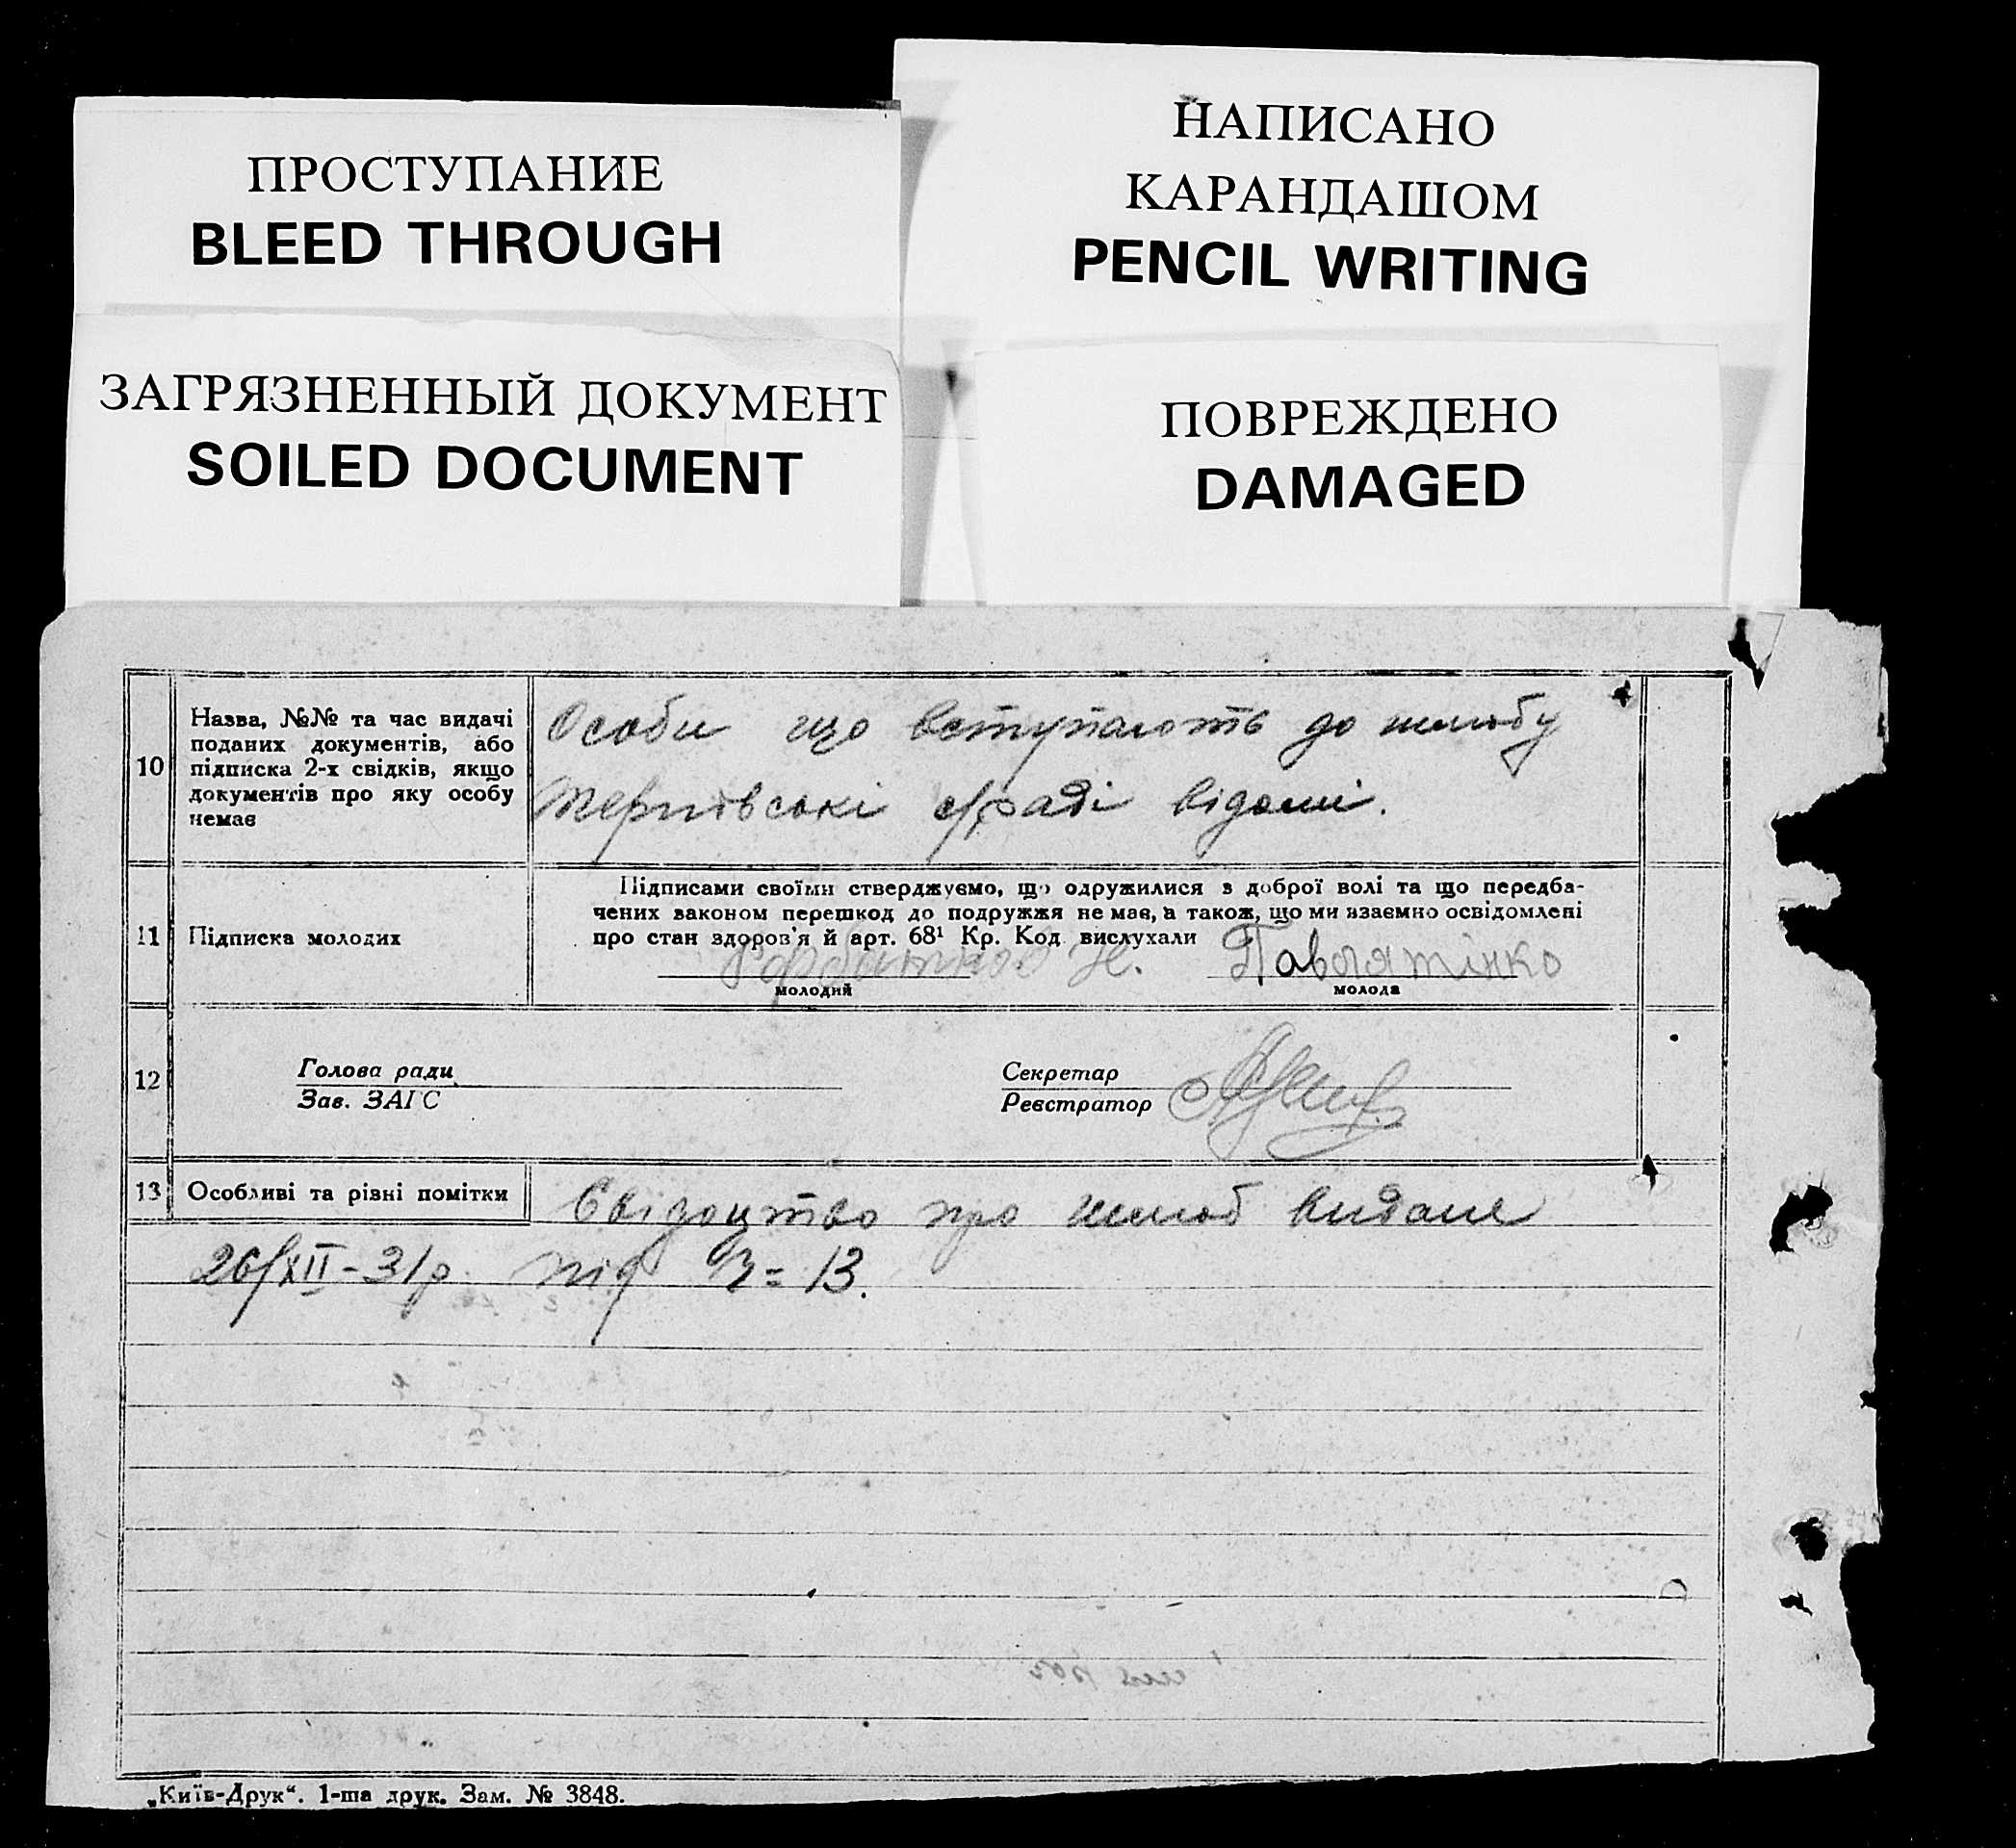 ПРОСТУПАНИЕ
BLEED THROUGH
НАПИСАНО
КАРАНДАШОМ
PENCIL WRITING
ЗАГРЯЗНЕННЫЙ ДОКУМЕНТ
SOILED DOCUMENT
ПОВРЕЖДЕНО
DAMAGED
10
Назва, №№ та час видачі
поданих документів, або
підписка 2-х свідків, якщо
документів про яку особу
немає
Особи що вступають до шлюбу
с/раді відомі.
11
Підписка молодих
Підписами своїми стверджуємо, що одружилися з доброї волі та що передба-
чених законом перешкод до подружжя не має, а також, що ми взаємно освідомлені
про стан здоров'я й арт. 68¹ Кр. Код. вислухали
молодий
молода
12
Голова ради
Зав. ЗАГС
Секретар
Реєстратор
13
Особливі та різні помітки
Свідоцтво про шлюб видане
26/XII-31р. під №= 13.
„Київ-Друк“. 1-ша друк. Зам. № 3848.